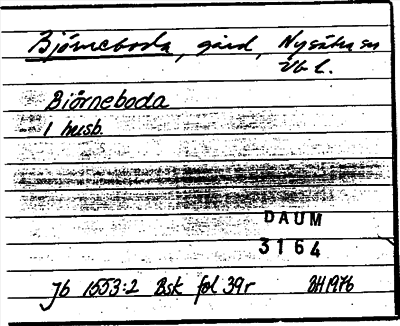 Björneboda, gård, Nysätra sn
Vb l.
Biörneboda
1 husb.
DAUM
3164
Jb 1553:2 Bsk fol 39r BH 1976